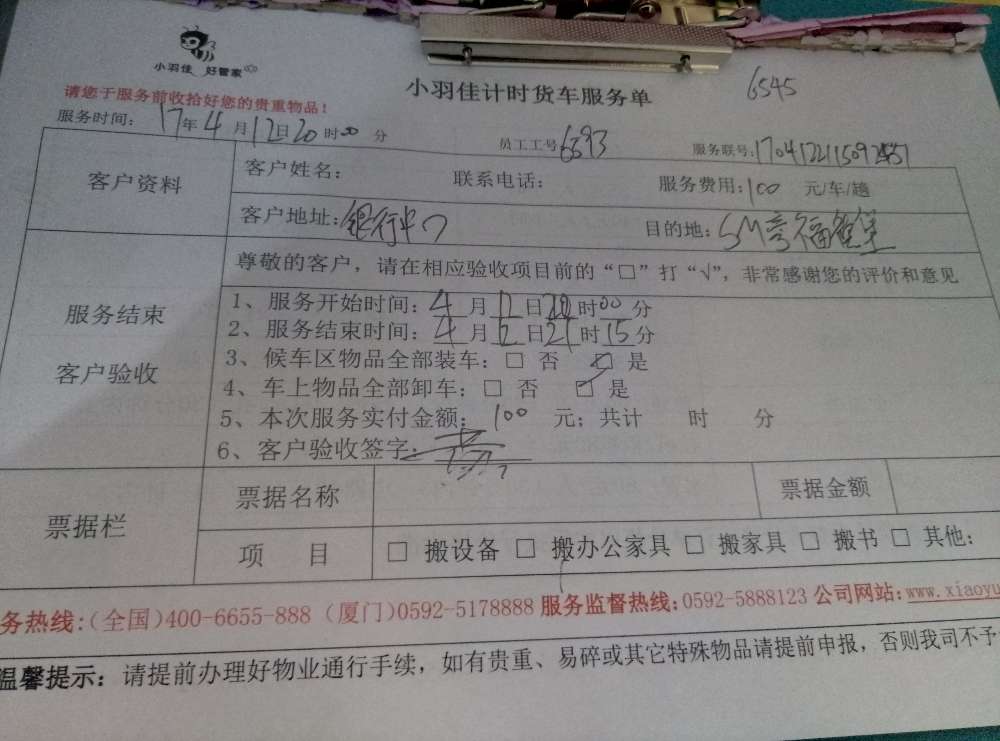 小羽佳 好管家
6545
小羽佳计时货车服务单
请您于服务前收拾好您的贵重物品！
服务时间： 17年4月12日20时00分 员工工号6593 服务联号：
客户资料 客户姓名： 联系电话： 服务费用：100 元/车/趟
客户地址：银行中心 目的地：SM
尊敬的客户，请在相应验收项目前的“□”打“√”，非常感谢您的评价和意见
服务结束 客户验收
1、服务开始时间：4月12日20时00分
2、服务结束时间：4月12日21时15分
3、候车区物品全部装车：□ 否 ☑ 是
4、车上物品全部卸车：□ 否 ☑ 是
5、本次服务实付金额：100 元；共计 时 分
6、客户验收签字：
票据栏 票据名称 票据金额
项 目 □ 搬设备 □ 搬办公家具 □ 搬家具 □ 搬书 □ 其他：
务热线:(全国)400-6655-888 (厦门)0592-5178888 服务监督热线:0592-5888123 公司网站:www.xiaoyu
温馨提示：请提前办理好物业通行手续，如有贵重、易碎或其它特殊物品请提前申报，否则我司不予